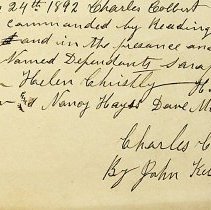 24th 1892 Charles Colbert
commanded by Reading
and in the presance and
Named Dependants Sara
Helen Christly H
& Nancy Hays Dave M
Charles C
By John Ke